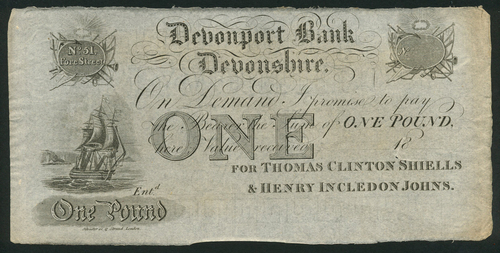 No. 51.
Fore Street
Devonport Bank
Devonshire.
No.
On Demand I promise to pay
the Bearer the Sum of ONE POUND,
here Value received 18
ONE
FOR THOMAS CLINTON SHIELLS
& HENRY INCLEDON JOHNS.
Ent.d
One Pound